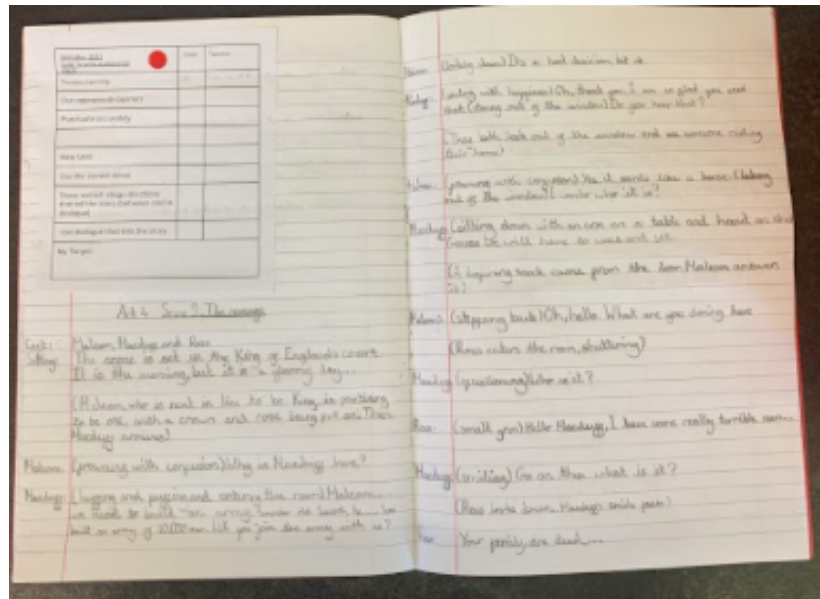 Previous Learning
Use appropriate openers
Punctuate accurately
New Learn
Use the correct tense
Show correct stage directions
that tell the story (between and in
dialogue)
Use dialogue that tells the story
My Target:
Act 4 Scene 2 The
Cast: Malcom, Macduff and Ross
Setting: The scene is set in the King of England's court
It is the morning, but it is a gloomy day...
(Malcom, who is next in line to be King, is practising
to be one, with a crown and robe being put on. Then
Macduff arrives)
Malcom: (frowning with confusion) Why is Macduff here?
Macduff: (huffing and puffing and entering the room) Malcom...
we need to build an army
built an army of 10,000 men. Will you join the army with us?
Malcom: (looking down) It's a hard decision, but ok
Macduff: with happiness) Oh, thank you. I am so glad you said
that. out of the window) Do you hear that?
(They both look out of the window and see someone riding
their horse)
Malcom: (frowning with confusion) it sounds like a horse. (looking
out of the window) I wonder who it is?
Macduff: (sitting down with an arm on a table and head on
we will have to wait and see.
(A knock came from the door. Malcom answers
it)
Malcom: (stepping back) Oh, hello. What are you doing here
(Ross enters the room, stuttering)
Macduff: (questioning) Who is it?
Ross: (small grin) Hello Macduff, I have some really terrible news...
Macduff: (smiling) Go on then what is it?
(Ross looks down. Macduff's smile fades)
Ross: Your family are dead...